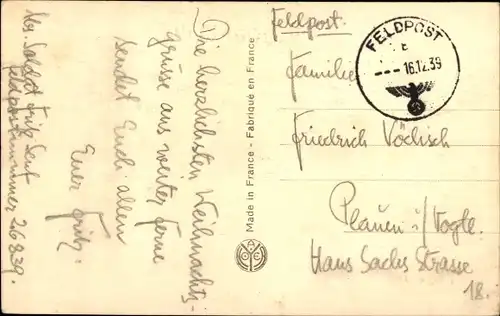 Die herzlichsten Weihnachts-
grüsse aus weiter Ferne
sendet Euch allen
Euer Fritz.
Abs. Soldat Fritz Senf
Feldpostnummer 26829.
Made in France - Fabriqué en France
Feldpost.
FELDPOST
16.12.39
Familie
Friedrich Vödisch
Plauen i/Vogtl.
Hans Sachs Strasse
18.